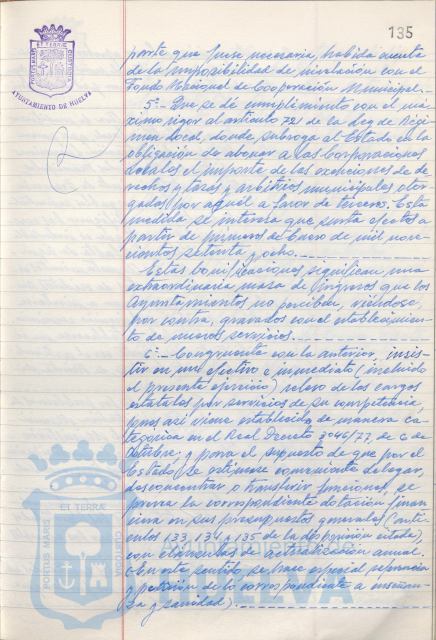 135
PORTUS MARIS ET TERRAE CUSTODIA
AYUNTAMIENTO DE HUELVA
parte que fuese necesaria, habida cuenta
de la imposibilidad de nivelación con el
Fondo Nacional de Cooperación Municipal.
5º.- Que se dé cumplimiento con el má-
ximo rigor al artículo 721 de la Ley de Régi-
men Local, donde subroga al Estado en la
obligación de abonar a las Corporaciones
Locales el importe de las exenciones de de-
rechos y tasas y arbitrios municipales otor-
gados por aquél a favor de terceros. Esta
medida se interesa que surta efectos a
partir de primeros de Enero de mil nove-
cientos setenta y ocho.
Estas bonificaciones significan una
extraordinaria masa de ingresos que los
Ayuntamientos no perciben, viéndose,
por contra, gravados con el establecimien-
to de nuevos servicios.
6º.- Congruente con la anterior, insis-
tir en un efectivo e inmediato (incluido
el presente ejercicio) relevo de las cargas
estatales por servicios de su competencia,
pues así viene establecido de manera ca-
tegórica en el Real Decreto 3046/77, de 6 de
Octubre; y para el supuesto de que por el
Estado se estimase conveniente delegar,
desconcentrar o transferir funciones, se
prevea la correspondiente dotación finan-
ciera en sus presupuestos generales (artí-
culos 133, 134 y 135 de la disposición citada),
con cláusulas de actualización anual.
En este sentido se hace especial referencia
y petición de lo correspondiente a enseñan-
za y sanidad).
PORTUS MARIS ET TERRAE CUSTODIA
HUELVA